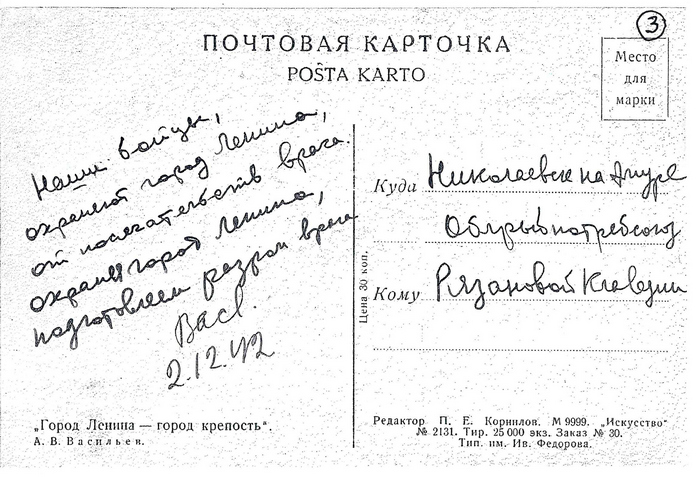 3
ПОЧТОВАЯ КАРТОЧКА
POŜTA KARTO
Место
для
марки
Наши бойцы,
охраняют город Ленина,
от посягательств врага.
охраняя город Ленина,
подготовляем разгром врага
Вас!.
2.12.42
Цена 30 коп.
Куда Николаевск на Амуре
Облрыбпотребсоюз
Кому Рязановой Клавдии
„Город Ленина — город крепость".
А. В. Васильев.
Редактор П. Е. Корнилов. М 9999. „Искусство"
№ 2131. Тир. 25 000 экз. Заказ № 30.
Тип. им. Ив. Федорова.